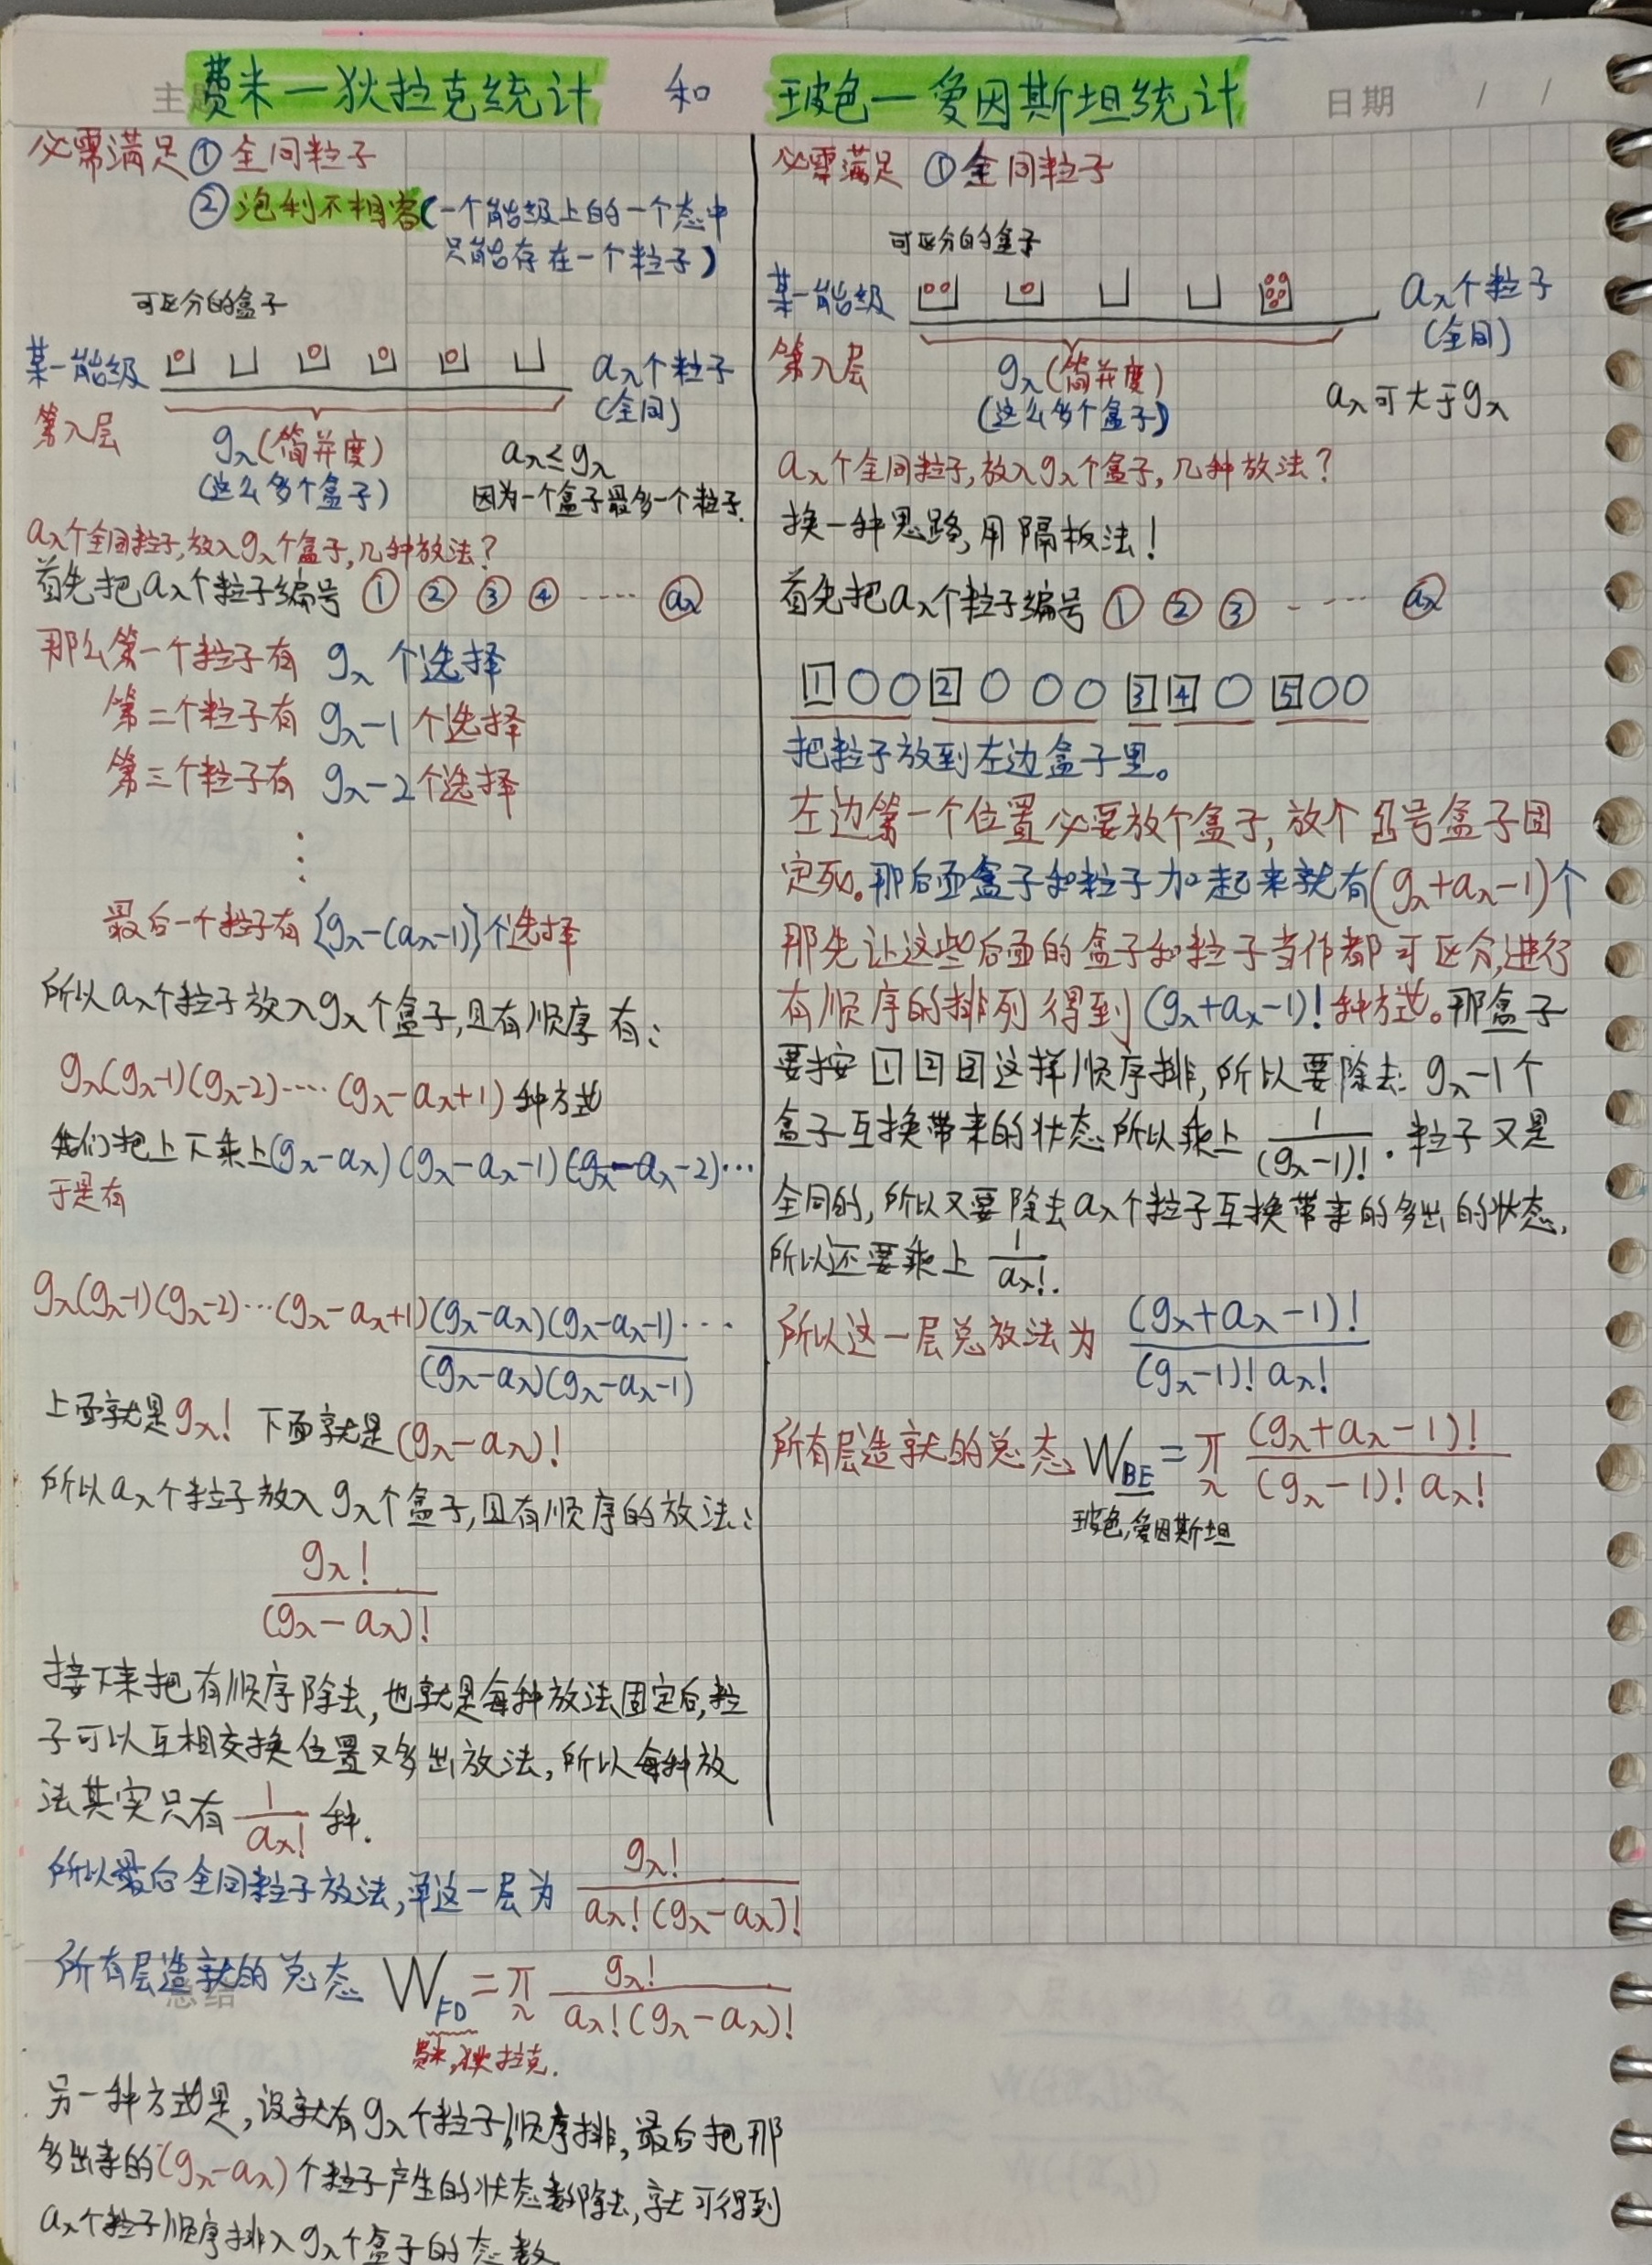 主题 费米—狄拉克统计 和 玻色—爱因斯坦统计 日期 / /
必需满足①全同粒子
②泡利不相容(一个能级上的一个态中
只能存在一个粒子)
可区分的盒子
某一能级 aλ个粒子
(全同)
第λ层
gλ(简并度)
(这么多个盒子)
aλ≤gλ
因为一个盒子最多一个粒子.
aλ个全同粒子,放入gλ个盒子,几种放法?
首先把aλ个粒子编号 ① ② ③ ④ ---- aλ
那么第一个粒子有 gλ 个选择
第二个粒子有 gλ-1 个选择
第三个粒子有 gλ-2 个选择
⋮
最后一个粒子有{gλ-(aλ-1)}个选择
所以aλ个粒子放入gλ个盒子,且有顺序有:
gλ(gλ-1)(gλ-2)····(gλ-aλ+1)种方式
我们把上下乘上(gλ-aλ)(gλ-aλ-1)(gλ-aλ-2)···
于是有
gλ(gλ-1)(gλ-2)···(gλ-aλ+1)(gλ-aλ)(gλ-aλ-1)···
(gλ-aλ)(gλ-aλ-1)
上面就是gλ! 下面就是(gλ-aλ)!
所以aλ个粒子放入gλ个盒子,且有顺序的放法:
gλ!
(gλ-aλ)!
接下来把有顺序除去,也就是每种放法固定后,粒
子可以互相交换位置又多出放法,所以每种放
法其实只有 1/aλ! 种.
所以最后全同粒子放法,单这一层为 gλ!/aλ!(gλ-aλ)!
所有层造就的总态 W_FD = π_λ gλ!/aλ!(gλ-aλ)!
总结
费米,狄拉克.
另一种方式是,设就有gλ个粒子顺序排,最后把那
多出来的(gλ-aλ)个粒子产生的状态数除去,就可得到
aλ个粒子顺序排入gλ个盒子的态数
必需满足 ①全同粒子
可区分的盒子
某一能级 aλ个粒子
(全同)
第λ层
gλ(简并度)
(这么多个盒子)
aλ可大于gλ
aλ个全同粒子,放入gλ个盒子,几种放法?
换一种思路,用隔板法!
首先把aλ个粒子编号 ① ② ③ ---- aλ
1 ○ ○ 2 ○ ○ ○ 3 4 ○ 5 ○ ○
把粒子放到左边盒子里。
左边第一个位置必要放个盒子,放个1号盒子固
定死。那后面盒子和粒子加起来就有(gλ+aλ-1)个
那先让这些后面的盒子和粒子当作都可区分,进行
有顺序的排列得到(gλ+aλ-1)!种方式。那盒子
要按 1 2 3 这样顺序排,所以要除去 gλ-1个
盒子互换带来的状态所以乘上 1/(gλ-1)! . 粒子又是
全同的,所以又要除去aλ个粒子互换带来的多出的状态,
所以还要乘上 1/aλ!.
所以这一层总放法为 (gλ+aλ-1)!/(gλ-1)! aλ!
所有层造就的总态 W_BE = π_λ (gλ+aλ-1)!/(gλ-1)! aλ!
玻色,爱因斯坦